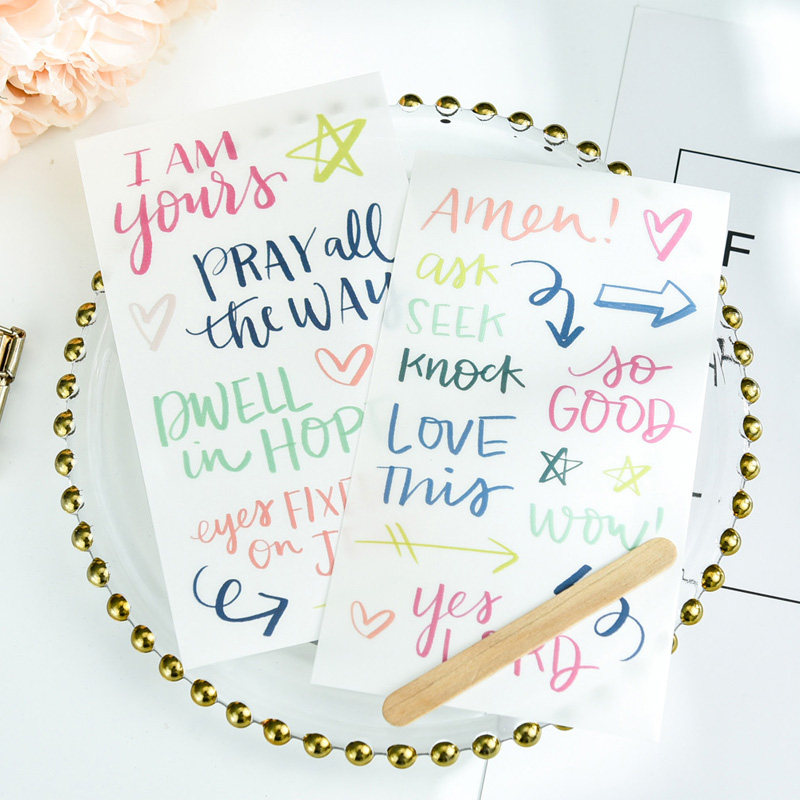 I AM
yours
PRAY all
the WAY
DWELL
in HOP
eyes FIXE
on J
Amen!
ask
SEEK
KNOCK
LOVE
THIS
so
GOOD
wow!
yes
LORD
F